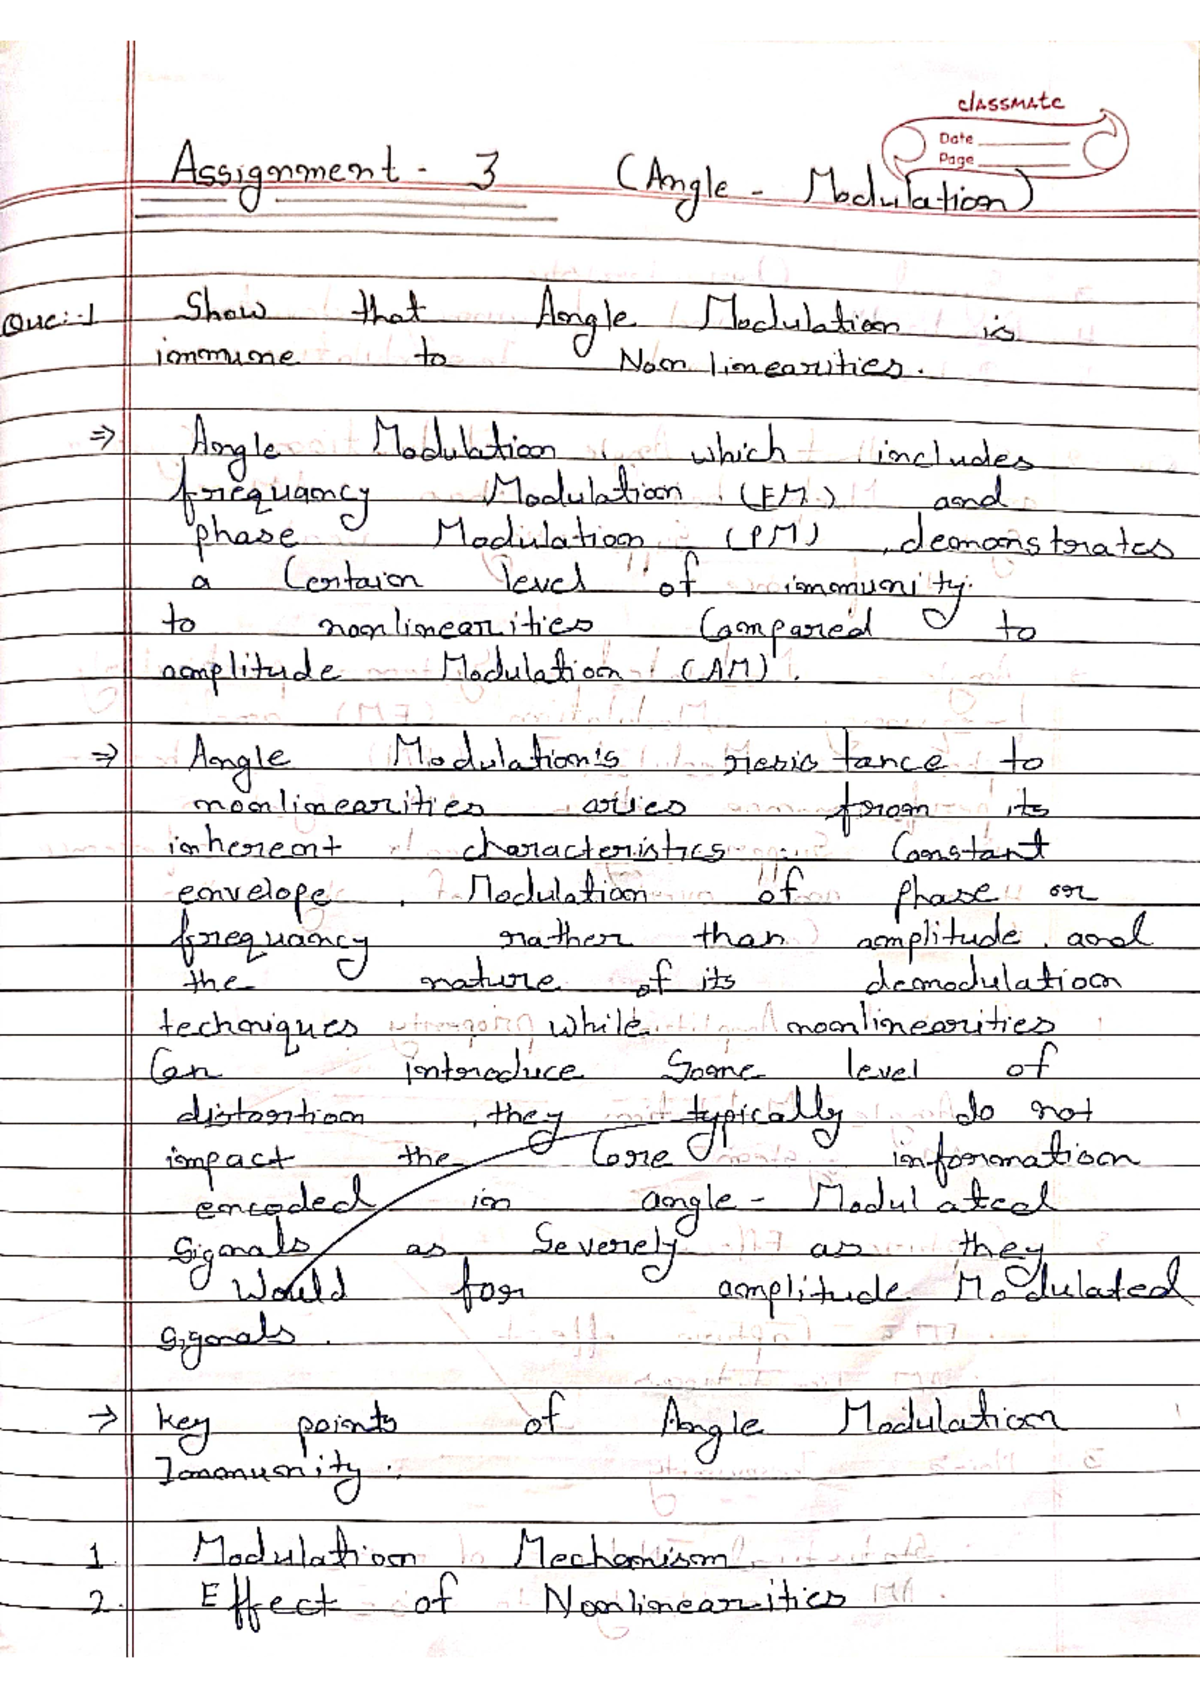 classmate
Date
Page
Assignment - 3 (Angle - Modulation)
Que:-1 Show that Angle Modulation is
immune to Non linearities.
⇒ Angle Modulation, which includes
frequancy Modulation (FM) and
phase Modulation (PM), demonstrates
a Certain level of immunity
to nonlinearities Compared to
amplitude Modulation (AM).
⇒ Angle Modulation's resistance to
nonlinearities aries from its
inherent characteristics Constant
envelope, Modulation of phase or
frequancy rather than amplitude, and
the nature of its demodulation
techniques while nonlinearities
Can introduce Some level of
distortion, they typically do not
impact the Core information
encoded in angle - Modulated
Signals as Severely as they
Would for amplitude Modulated
Signals.
→ key points of Angle Modulation
Immunity:
1. Modulation Mechanism
2. Effect of Nonlinearities